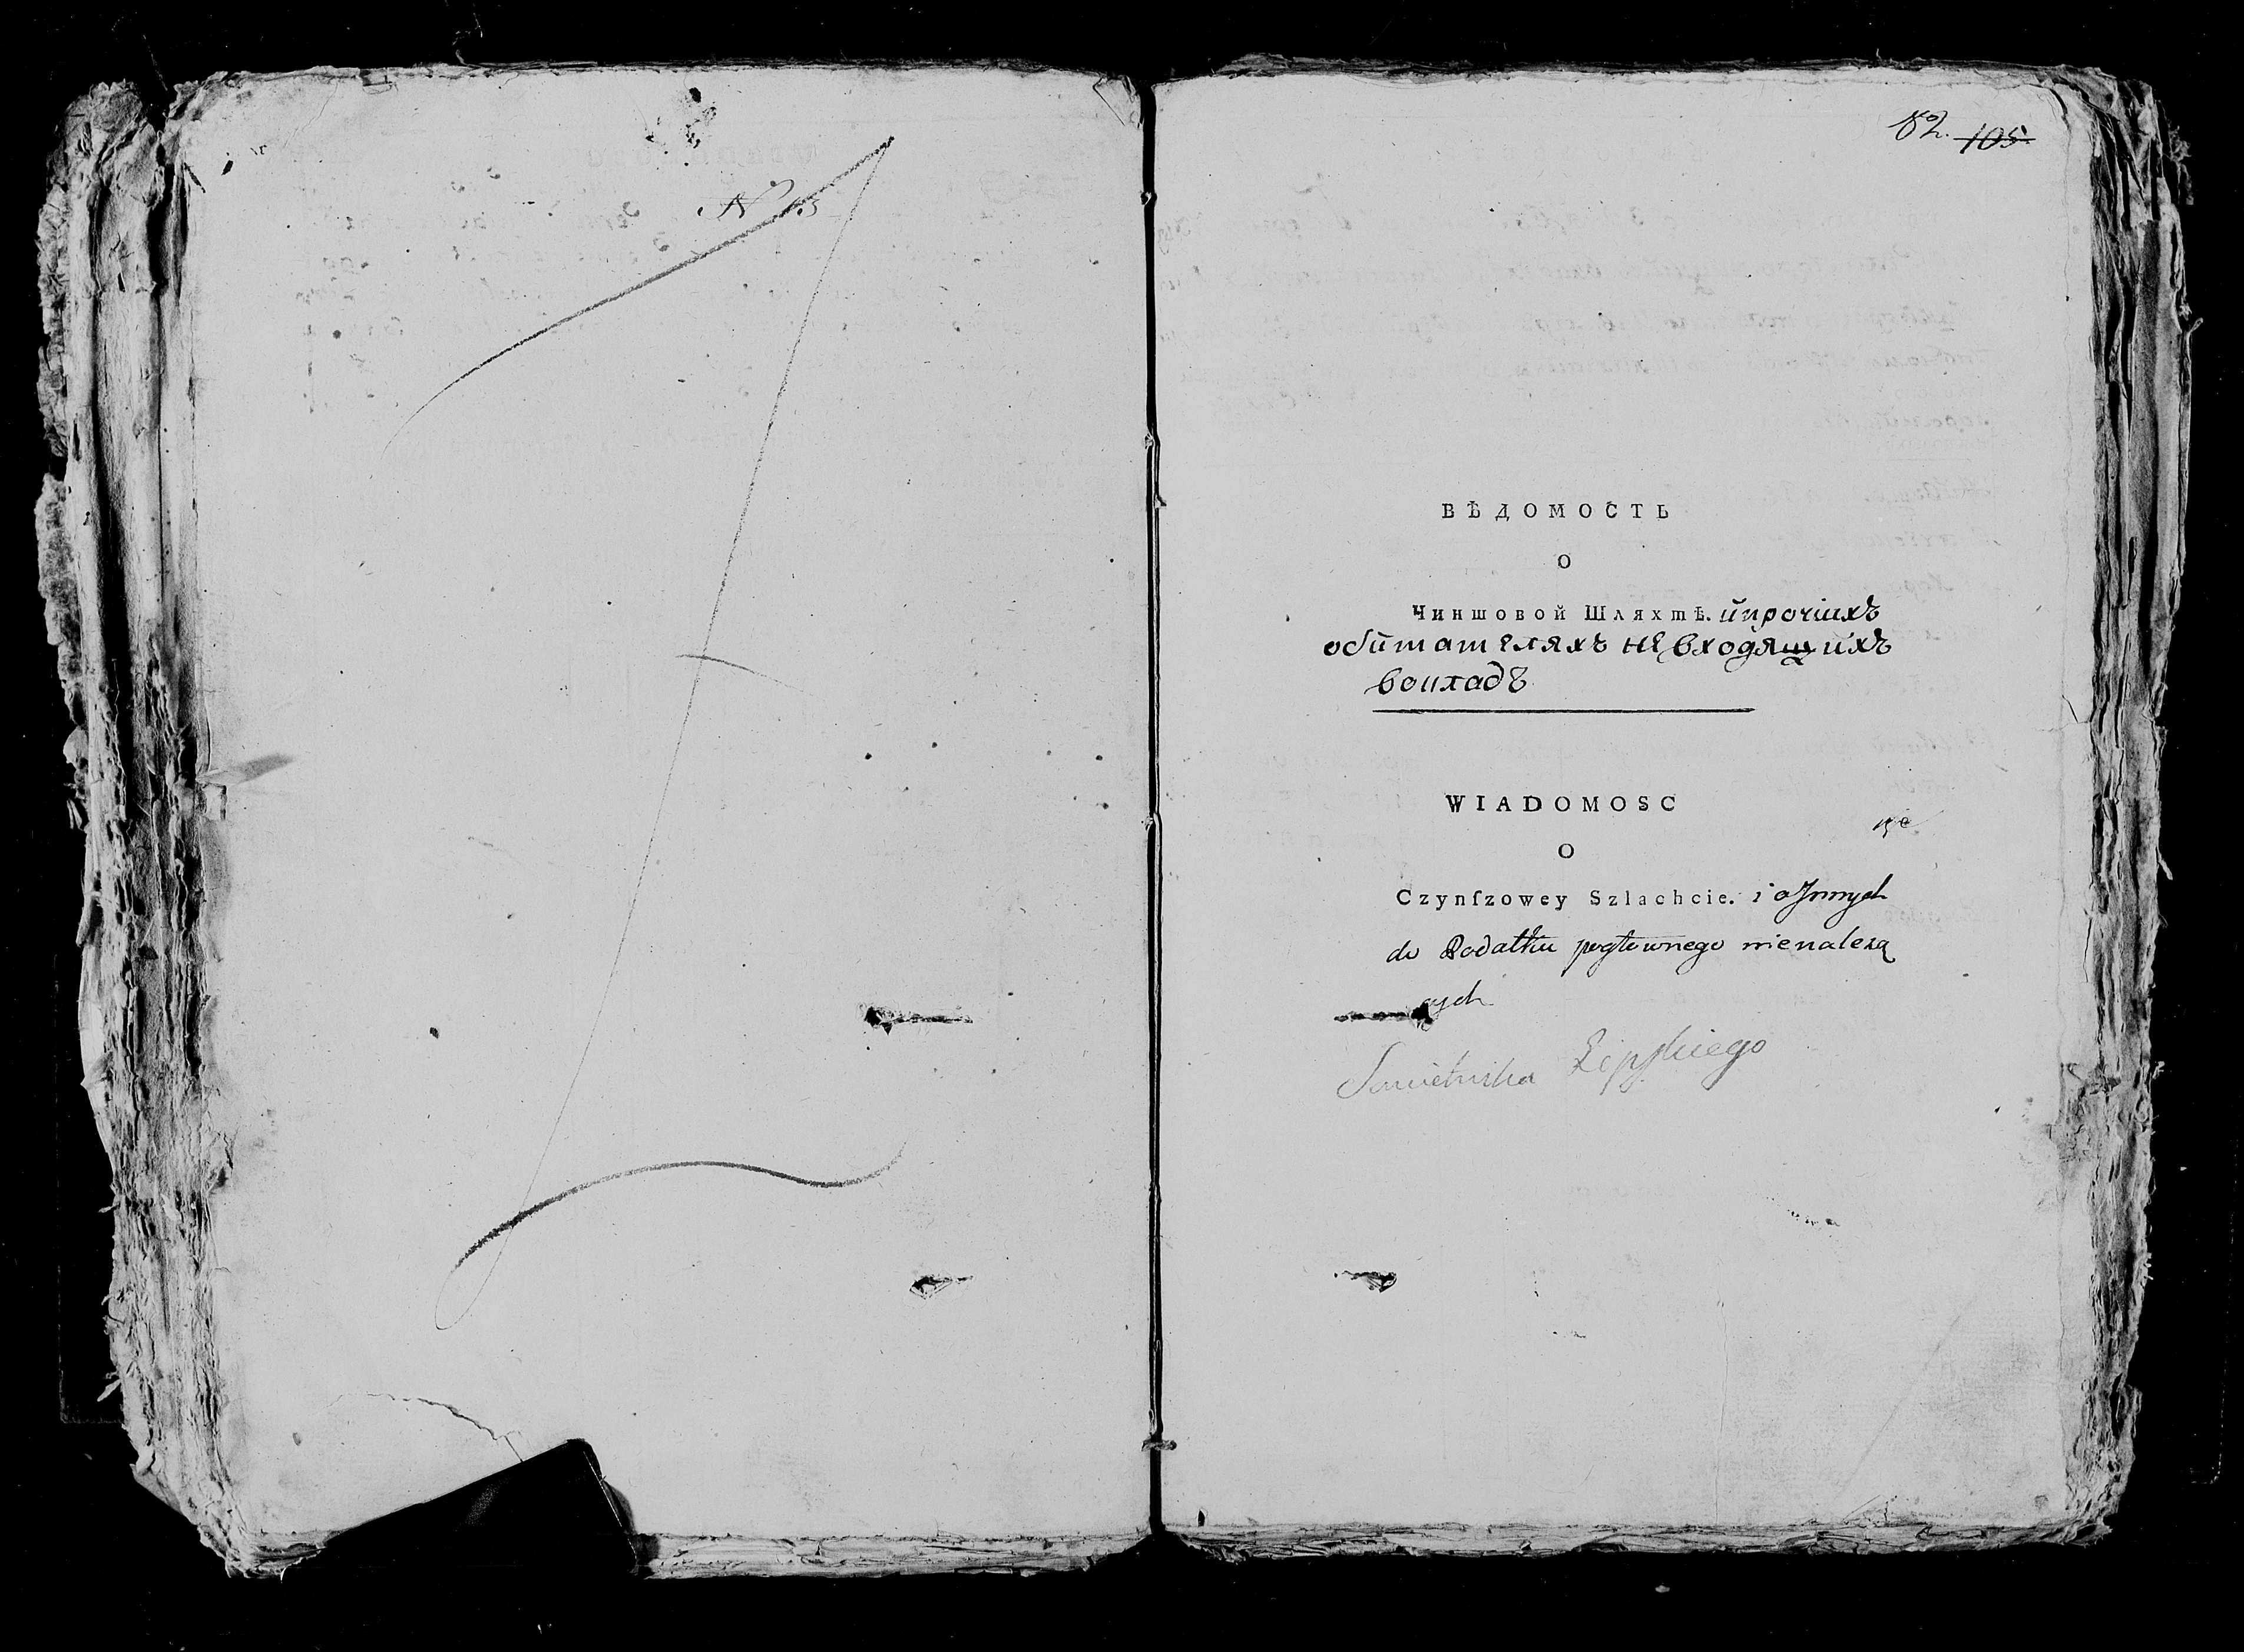 N 13
82. 105.
ВѢДОМОСТЬ
О
Чиншовой Шляхтѣ. ипрочихъ
обитателяхъ невходящихъ
вокладъ
WIADOMOSC
O
Czynſzowey Szlachcie. i o Jnnych
do Podatku pogłownego nienależą
cych
Sowietnika Lipſkiego